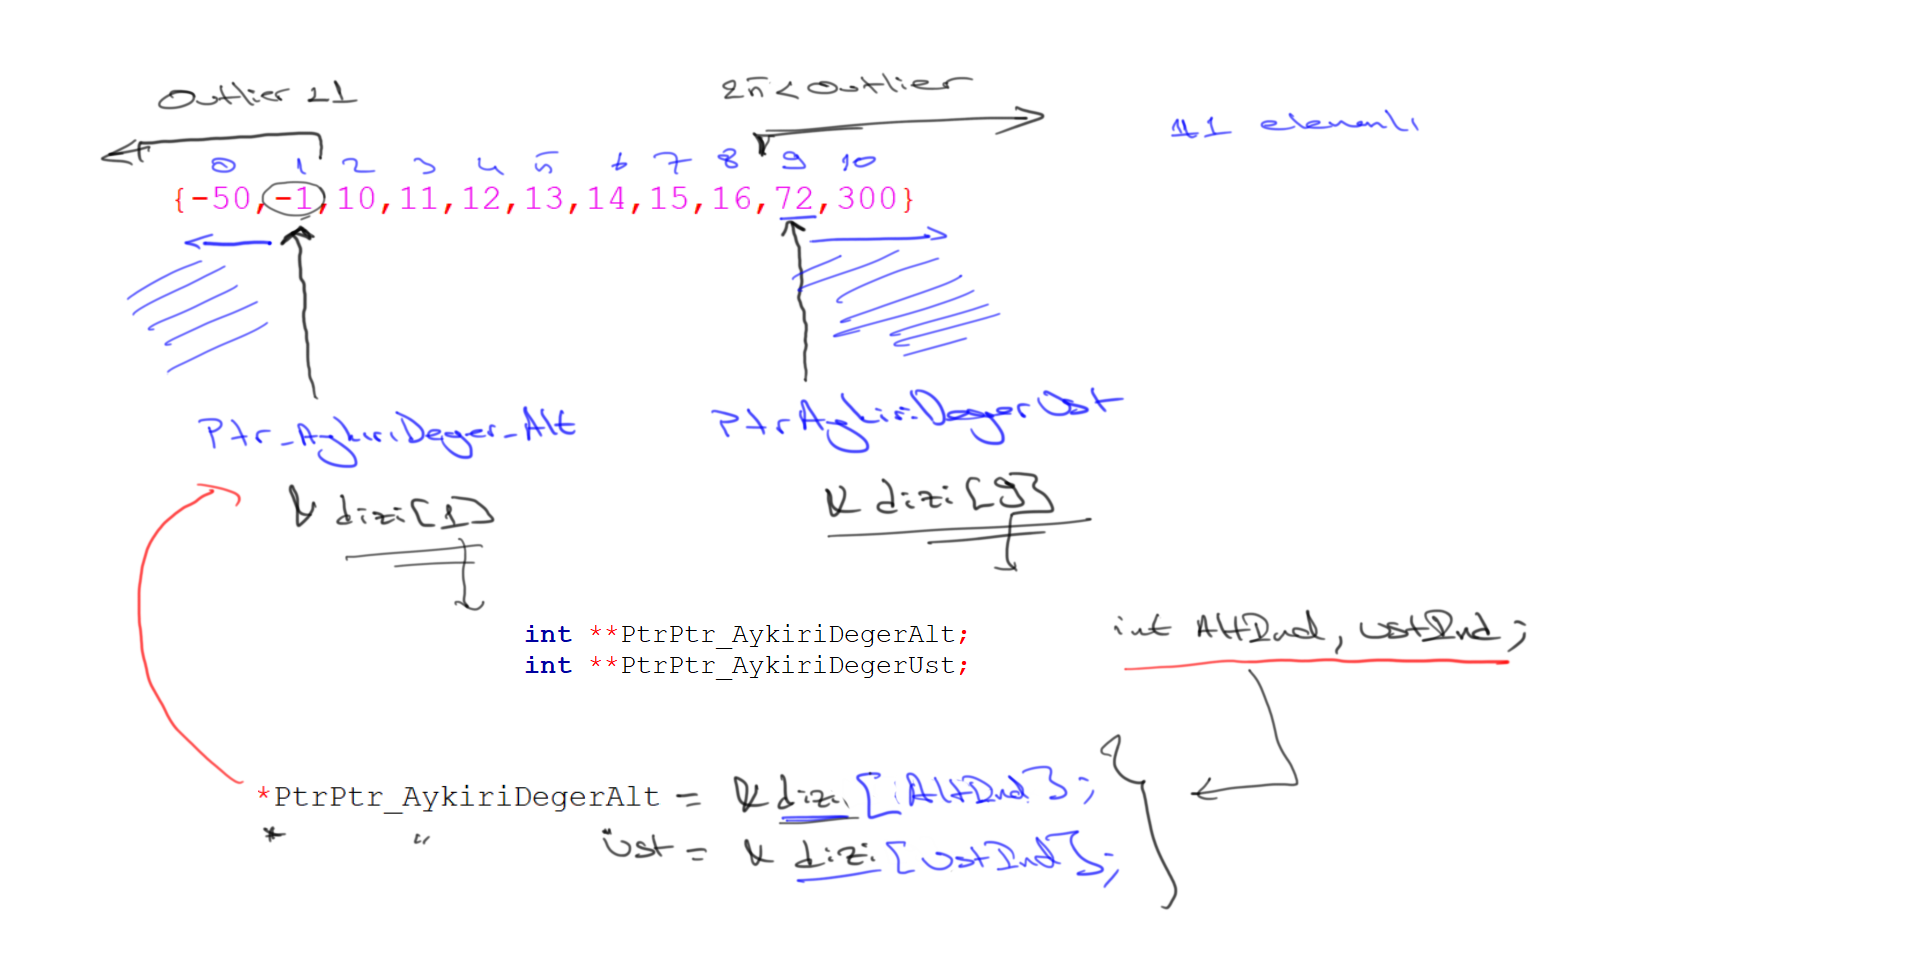 Outlier <1
25 < Outlier
11 elemanlı
0 1 2 3 4 5 6 7 8 9 10
{-50,-1,10,11,12,13,14,15,16,72,300}
Ptr_AykiriDeger_Alt
PtrAykiriDegerUst
& dizi[1]
& dizi[9]
int **PtrPtr_AykiriDegerAlt;
int **PtrPtr_AykiriDegerUst;
int AltInd, UstInd;
*PtrPtr_AykiriDegerAlt = & dizi[AltInd];
* " üst = & dizi[UstInd];